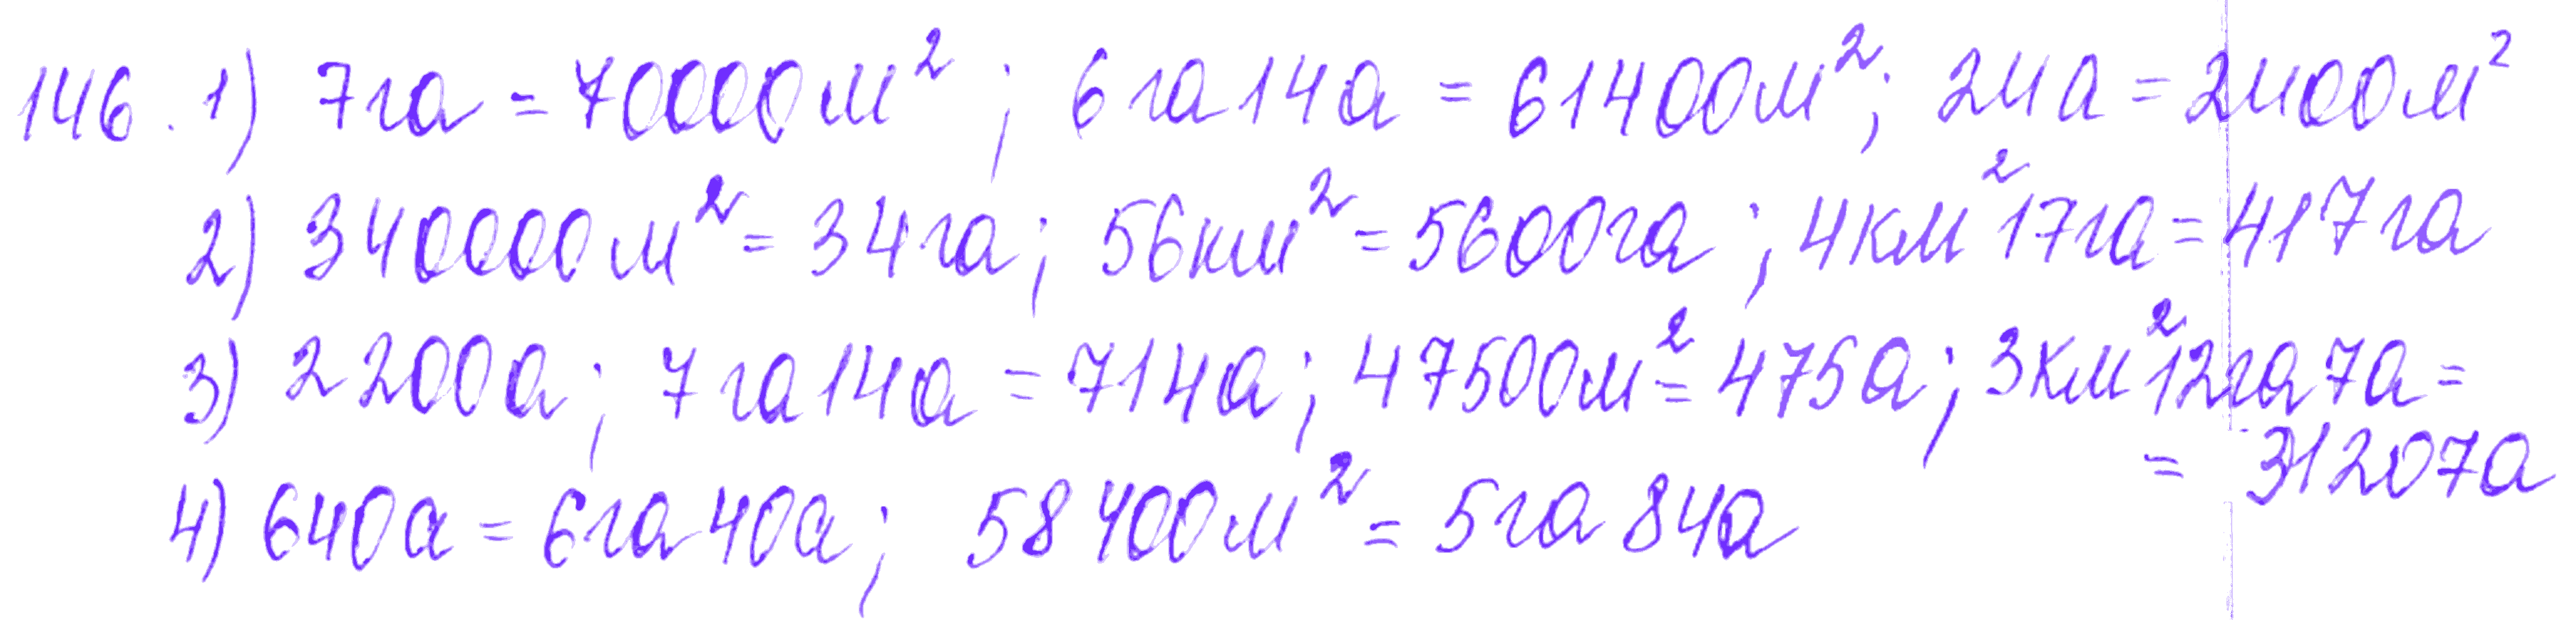 146. 1) 7га = 70000м²; 6га14а = 61400м²; 24а = 2400м²
2) 340000м² = 34га; 56км² = 5600га; 4км²17га = 417га
3) 2200а; 7га14а = 714а; 47500м² = 475а; 3км²12га7а =
= 31207а
4) 640а = 6га40а; 58400м² = 5га 84а